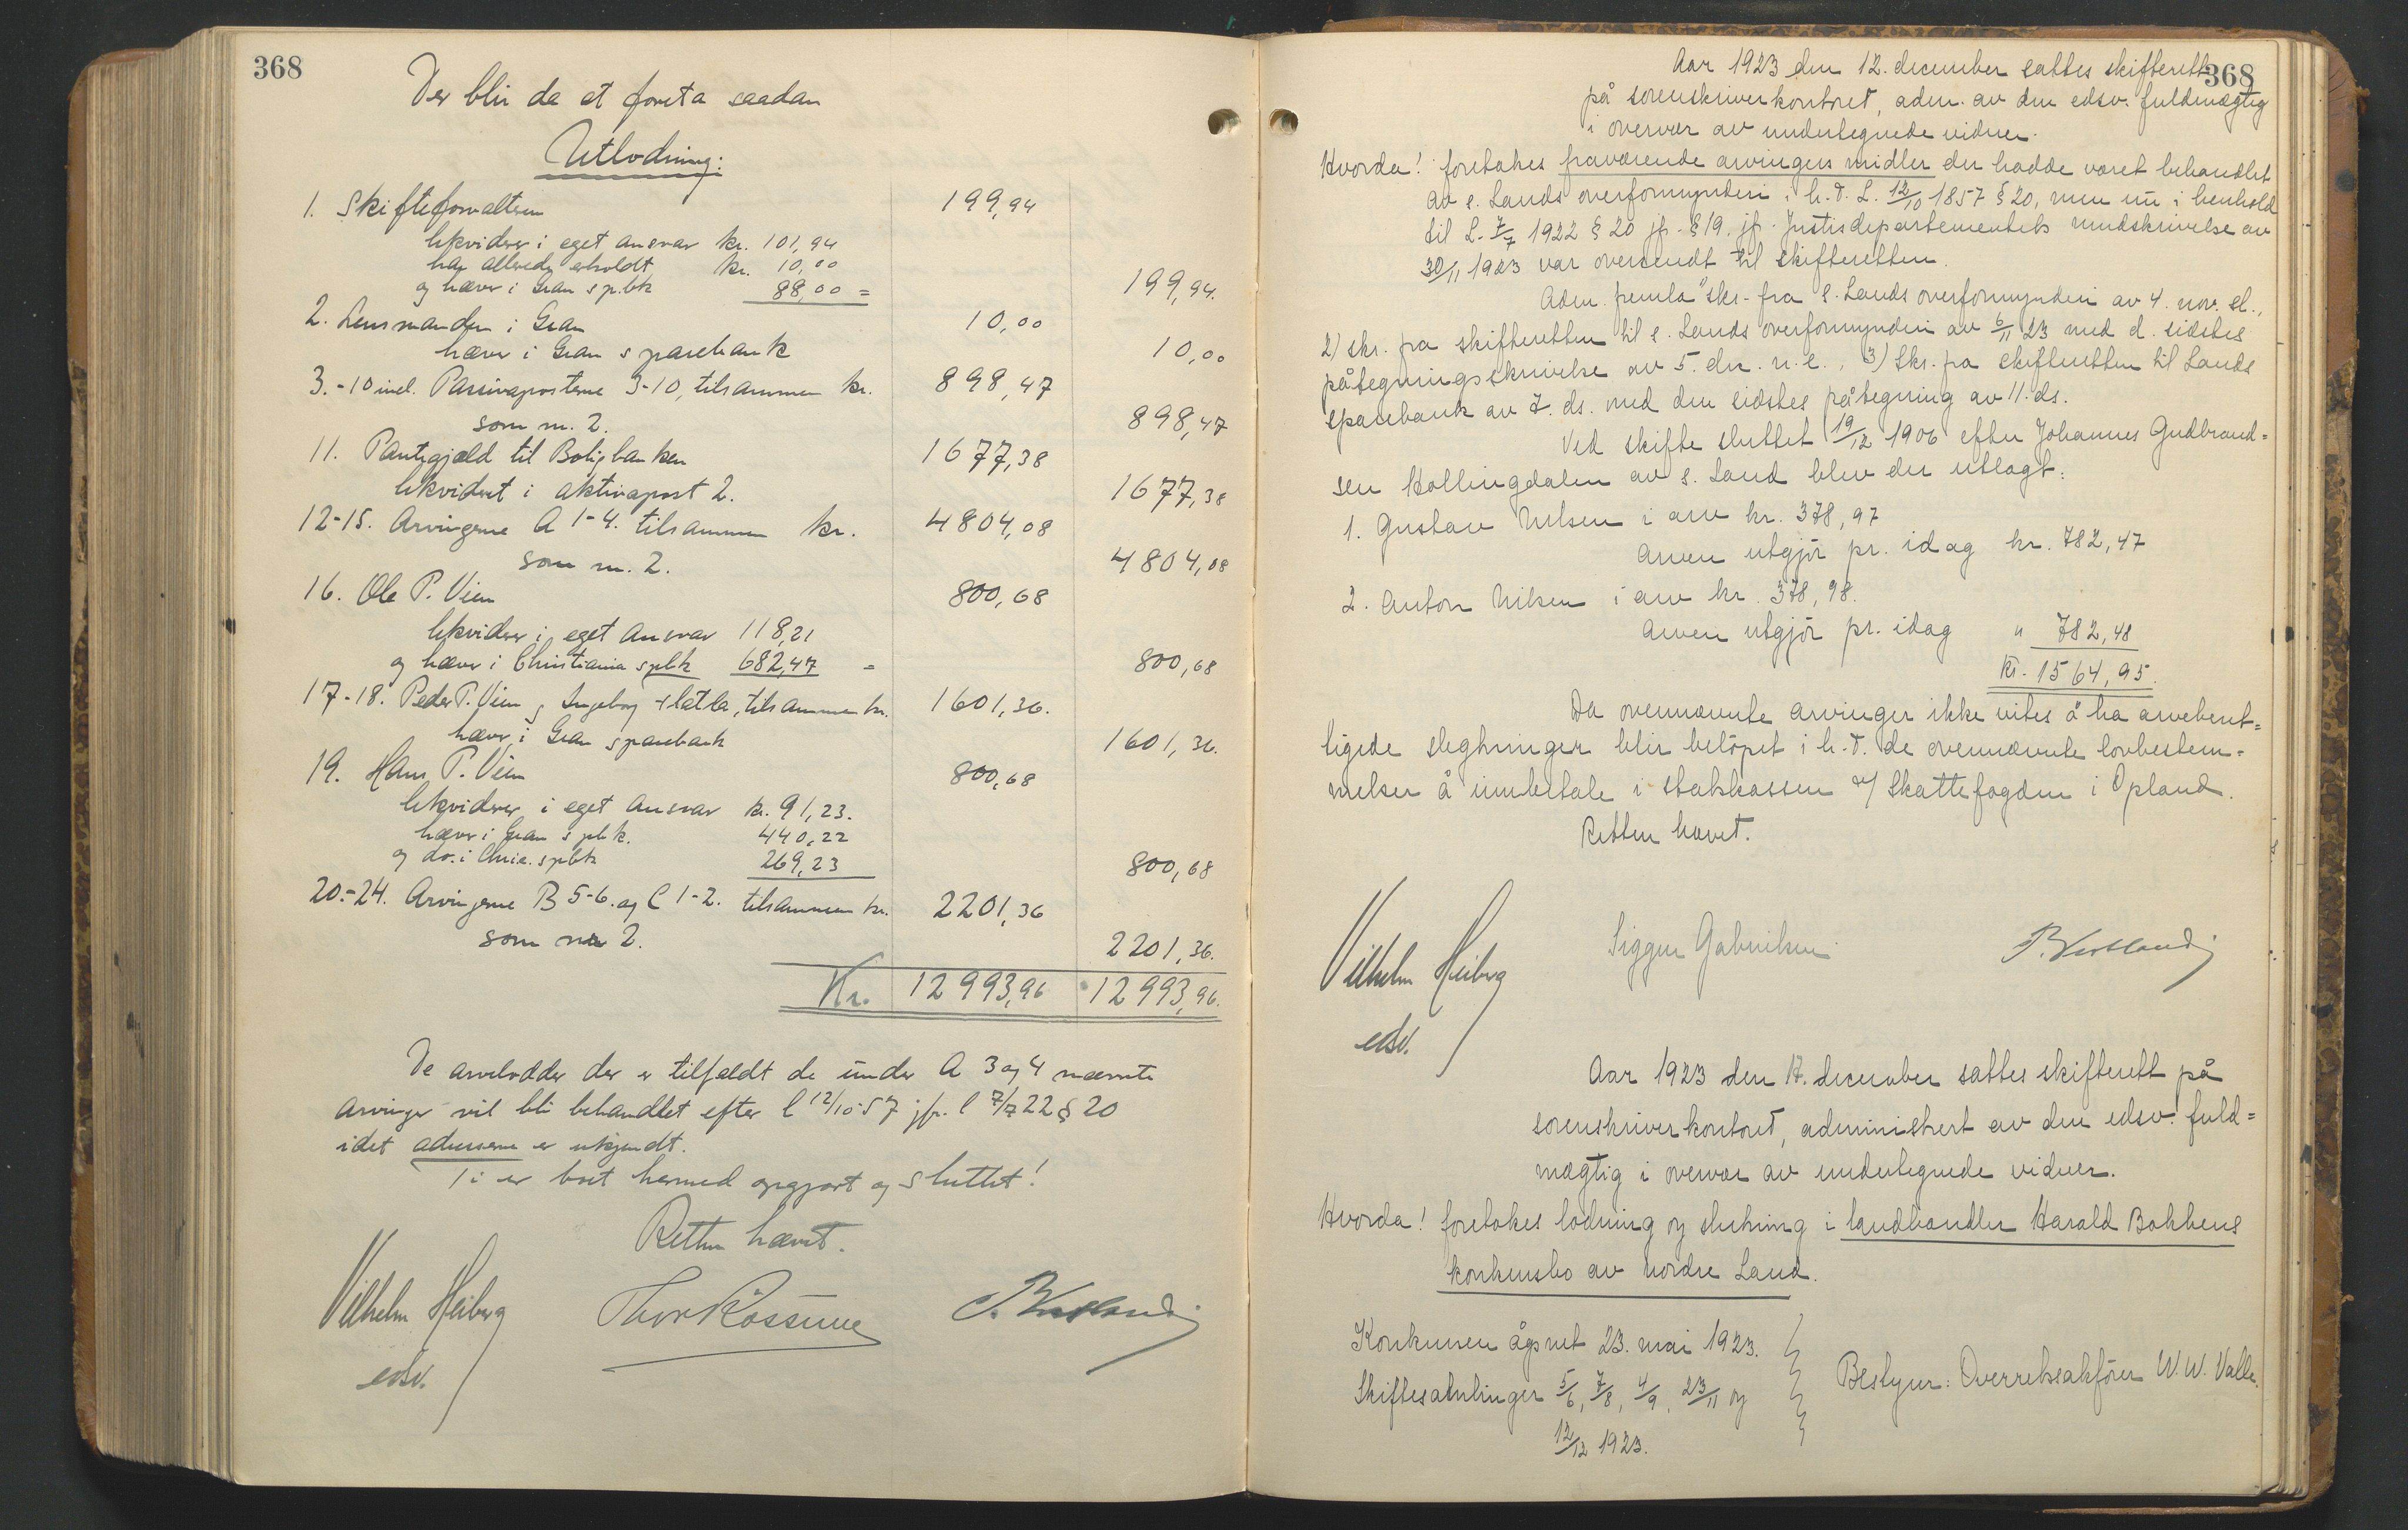 368
Der blir da at foreta saadan
Utlodning:
1. Skifteforvalteren 199,94
likviderer i eget ansvar kr. 101,94
har allerede erholdt kr. 10,00
og hæver i Gran spbk 88,00 = 199,94.
2. Lensmanden i Gran 10,00
hæver i Gran sparebank 10,00
3.-10 incl. Passivaposterne 3-10, tilsammen kr. 898,47
som nr. 2. 898,47
11. Pantegjæld til Boligbanken 1677,38
likvidert i aktivapost 2. 1677,38
12-15. Arvingerne A 1-4. tilsammen kr. 4804,08
som nr. 2. 4804,08
16. Ole P. Vien 800,68
likviderer i eget ansvar 118,21
og hæver i Christiania spbk 682,47 = 800,68
17-18. Peder P. Vien og Ingeborg Slatla, tilsammen kr. 1601,36.
hæver i Gran sparebank 1601,36.
19. Hans P. Vien 800,68
likviderer i eget ansvar kr. 91,23.
hæver i Gran spbk. 440,22
og do. i Chria. spbk 269,23 800,68
20.-24. Arvingerne B 5-6. og C 1-2. tilsammen kr. 2201,36
som nr 2. 2201,36.
Kr. 12993,96 12993,96.
De arvelodder der er tilfaldt de under A 3 og 4 nævnte
arvinger vil bli behandlet efter l 12/10-57 jfr. l 7/7 22 § 20
idet adresserne er ukjendt.
Ti er boet hermed opgjort og sluttet!
Retten hævet.
Vilhelm Heiberg
edsv.
368
Aar 1923 den 12. december sattes skifterett
på sorenskriverkontoret, adm. av den edsv. fuldmægtig
i overvær av undertegnede vidner.
Hvorda! foretakes fraværende arvingers midler der hadde været behandlet
av s. Lands overformynderi i h.t. L. 12/10 1857 § 20, men nu i henhold
til L. 7/7 1922 § 20 jfr. § 19, jfr. Justisdepartementets rundskrivelse av
30/11 1923 var oversendt til skifteretten.
Adm. fremla skr. fra s. Lands overformynderi av 4. nov. sl.,
2) skr. fra skifteretten til s. Lands overformynderi av 6/11 23 med d. sidstes
påtegningsskrivelse av 5. dn. n.e., 3) Skr. fra skifteretten til Lands
sparebank av 7. ds. med den sidstes påtegning av 11. ds.
Ved skifte sluttet 19/12 1906 efter Johannes Gudbrand=
sen Hollingdalen av s. Land blev der utlagt:
1. Gustav Nilsen i arv kr. 378,97
Arven utgjør pr. idag kr. 782,47
2. Anton Nilsen i arv kr. 378,98.
Arven utgjør pr. idag " 782,48
Kr. 1564,95.
Da ovennævnte arvinger ikke vites å ha arveberet=
tigede slegtninger blir beløpet i h.t. de ovennævnte lovbestem=
melser å innbetale i statskassen v/ Skattefogden i Opland.
Retten hævet.
Vilhelm Heiberg
edsv.
Aar 1923 den 17. december sattes skifterett på
sorenskriverkontoret, administrert av den edsv. fuld=
mægtig i overvær av undertegnede vidner.
Hvorda! foretakes lodning og slutning i landhandler Harald Bakkens
konkursbo av nordre Land.
Konkursen åpnet 23. mai 1923.
Skiftesamlinger 5/6, 7/8, 4/9, 23/11 og
12/12 1923.
Bestyrer: Overretssakfører W. W. Valle.